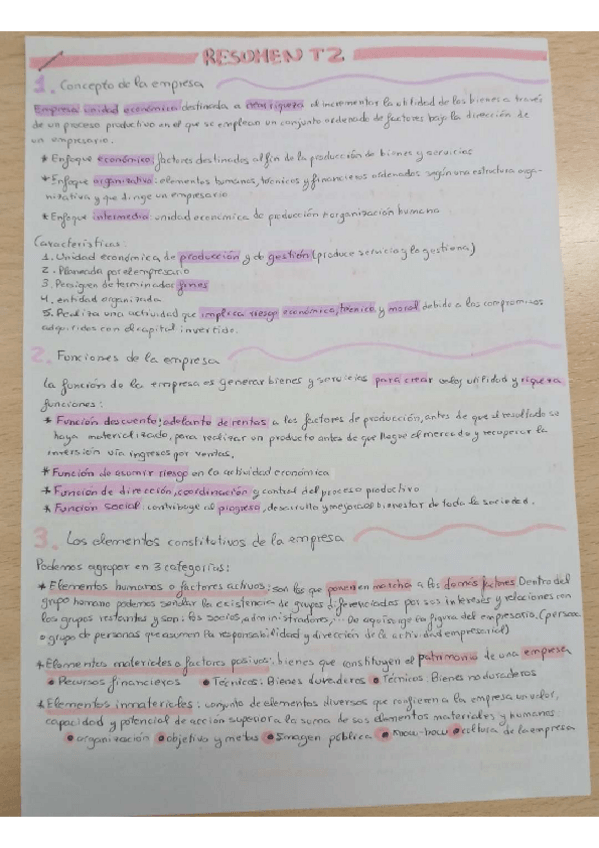 RESUMEN T2
1. Concepto de la empresa
Empresa unidad económica destinada a crear riqueza al incrementar la utilidad de los bienes a través
de un proceso productivo en el que se emplean un conjunto ordenado de factores bajo la dirección de
un empresario.
* Enfoque económico: factores destinados al fin de la producción de bienes y servicios
* Enfoque organizativo: elementos humanos, técnicos y financieros ordenados según una estructura orga-
nizativa y que dirige un empresario
* Enfoque intermedio: unidad económica de producción + organización humana
Características:
1. Unidad económica de producción y de gestión (produce servicio y lo gestiona)
2. Planeada por el empresario
3. Persiguen determinados fines
4. entidad organizada
5. Realiza una actividad que implica riesgo económico, técnico y moral debido a los compromisos
adquiridos con el capital invertido.
2. Funciones de la empresa
La función de la empresa es generar bienes y servicios para crear valor, utilidad y riqueza
funciones:
* Función descuento; adelanto de rentas a los factores de producción, antes de que el resultado se
haya materializado, para realizar un producto antes de que llegue al mercado y recuperar la
inversión vía ingresos por ventas.
* Función de asumir riesgo en la actividad económica
* Función de dirección, coordinación y control del proceso productivo
* Función social: contribuye al progreso, desarrollo y mejora del bienestar de toda la sociedad.
3. Los elementos constitutivos de la empresa
Podemos agrupar en 3 categorías:
* Elementos humanos o factores activos: son los que ponen en marcha a los demás factores Dentro del
grupo humano podemos señalar la existencia de grupos diferenciados por sus intereses y relaciones con
los grupos restantes y son: los socios, administradores,... De aquí surge la figura del empresario. (persona
o grupo de personas que asumen la responsabilidad y dirección de la actividad empresarial)
* Elementos materiales o factores pasivos: bienes que constituyen el patrimonio de una empresa
• Recursos financieros • Técnicos: Bienes duraderos • Técnicos: Bienes no duraderos
* Elementos inmateriales: conjunto de elementos diversos que confieren a la empresa un valor,
capacidad y potencial de acción superior a la suma de sus elementos materiales y humanos
• organización • objetivo y metas • Imagen pública • Know-how • cultura de la empresa